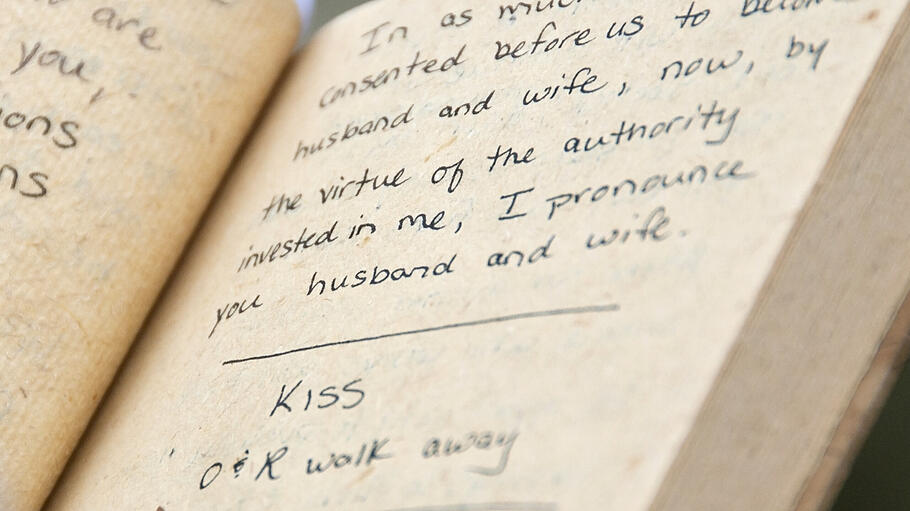 are
you,
ions
ns
In as much
consented before us to become
husband and wife, now, by
the virtue of the authority
invested in me, I pronounce
you husband and wife.
Kiss
O & R walk away